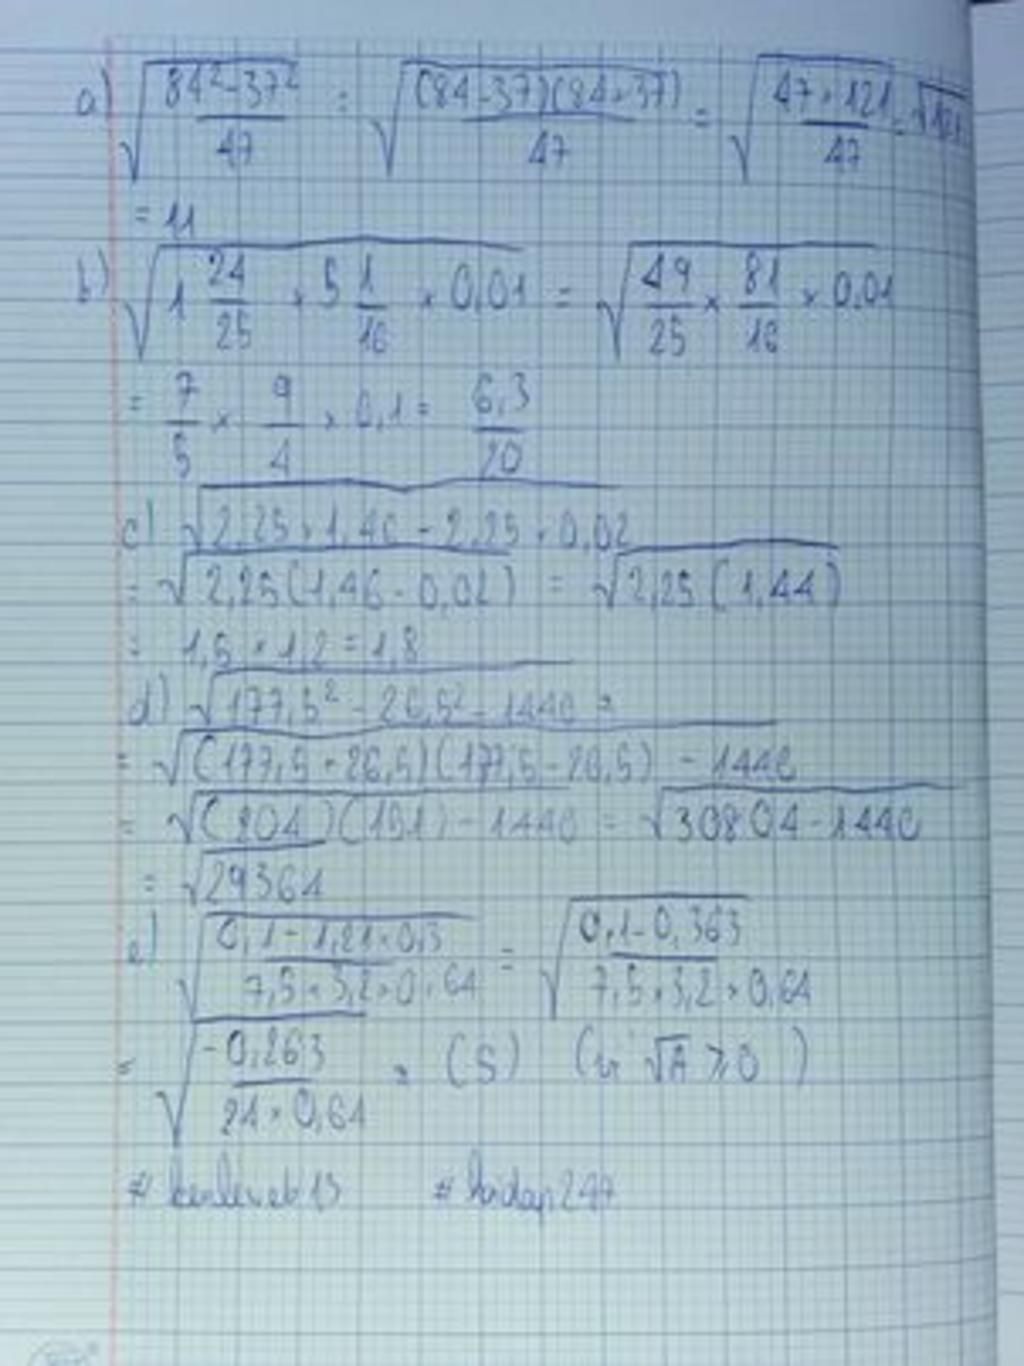 a) √((84² - 37²)/47) = √((84-37)(84+37)/47) = √((47×121)/47) = √121
= 11
b) √(1 24/25 × 5 1/16 × 0,01) = √(49/25 × 81/16 × 0,01)
= 7/5 × 9/4 × 0,1 = 6,3/20
c) √(2,25 × 1,46 - 2,25 × 0,02)
= √(2,25(1,46 - 0,02)) = √(2,25(1,44))
= 1,5 × 1,2 = 1,8
d) √(177,5² - 26,5² - 1440) =
= √((177,5 + 26,5)(177,5 - 26,5) - 1440)
= √((204)(151) - 1440) = √(30804 - 1440)
= √29364
e) √((0,1 - 1,21×0,3)/(7,5×3,2×0,64)) = √((0,1 - 0,363)/(7,5×3,2×0,64))
= √(-0,263/(24×0,64)) = (S) (vì √A ≥ 0)
# hoidap247